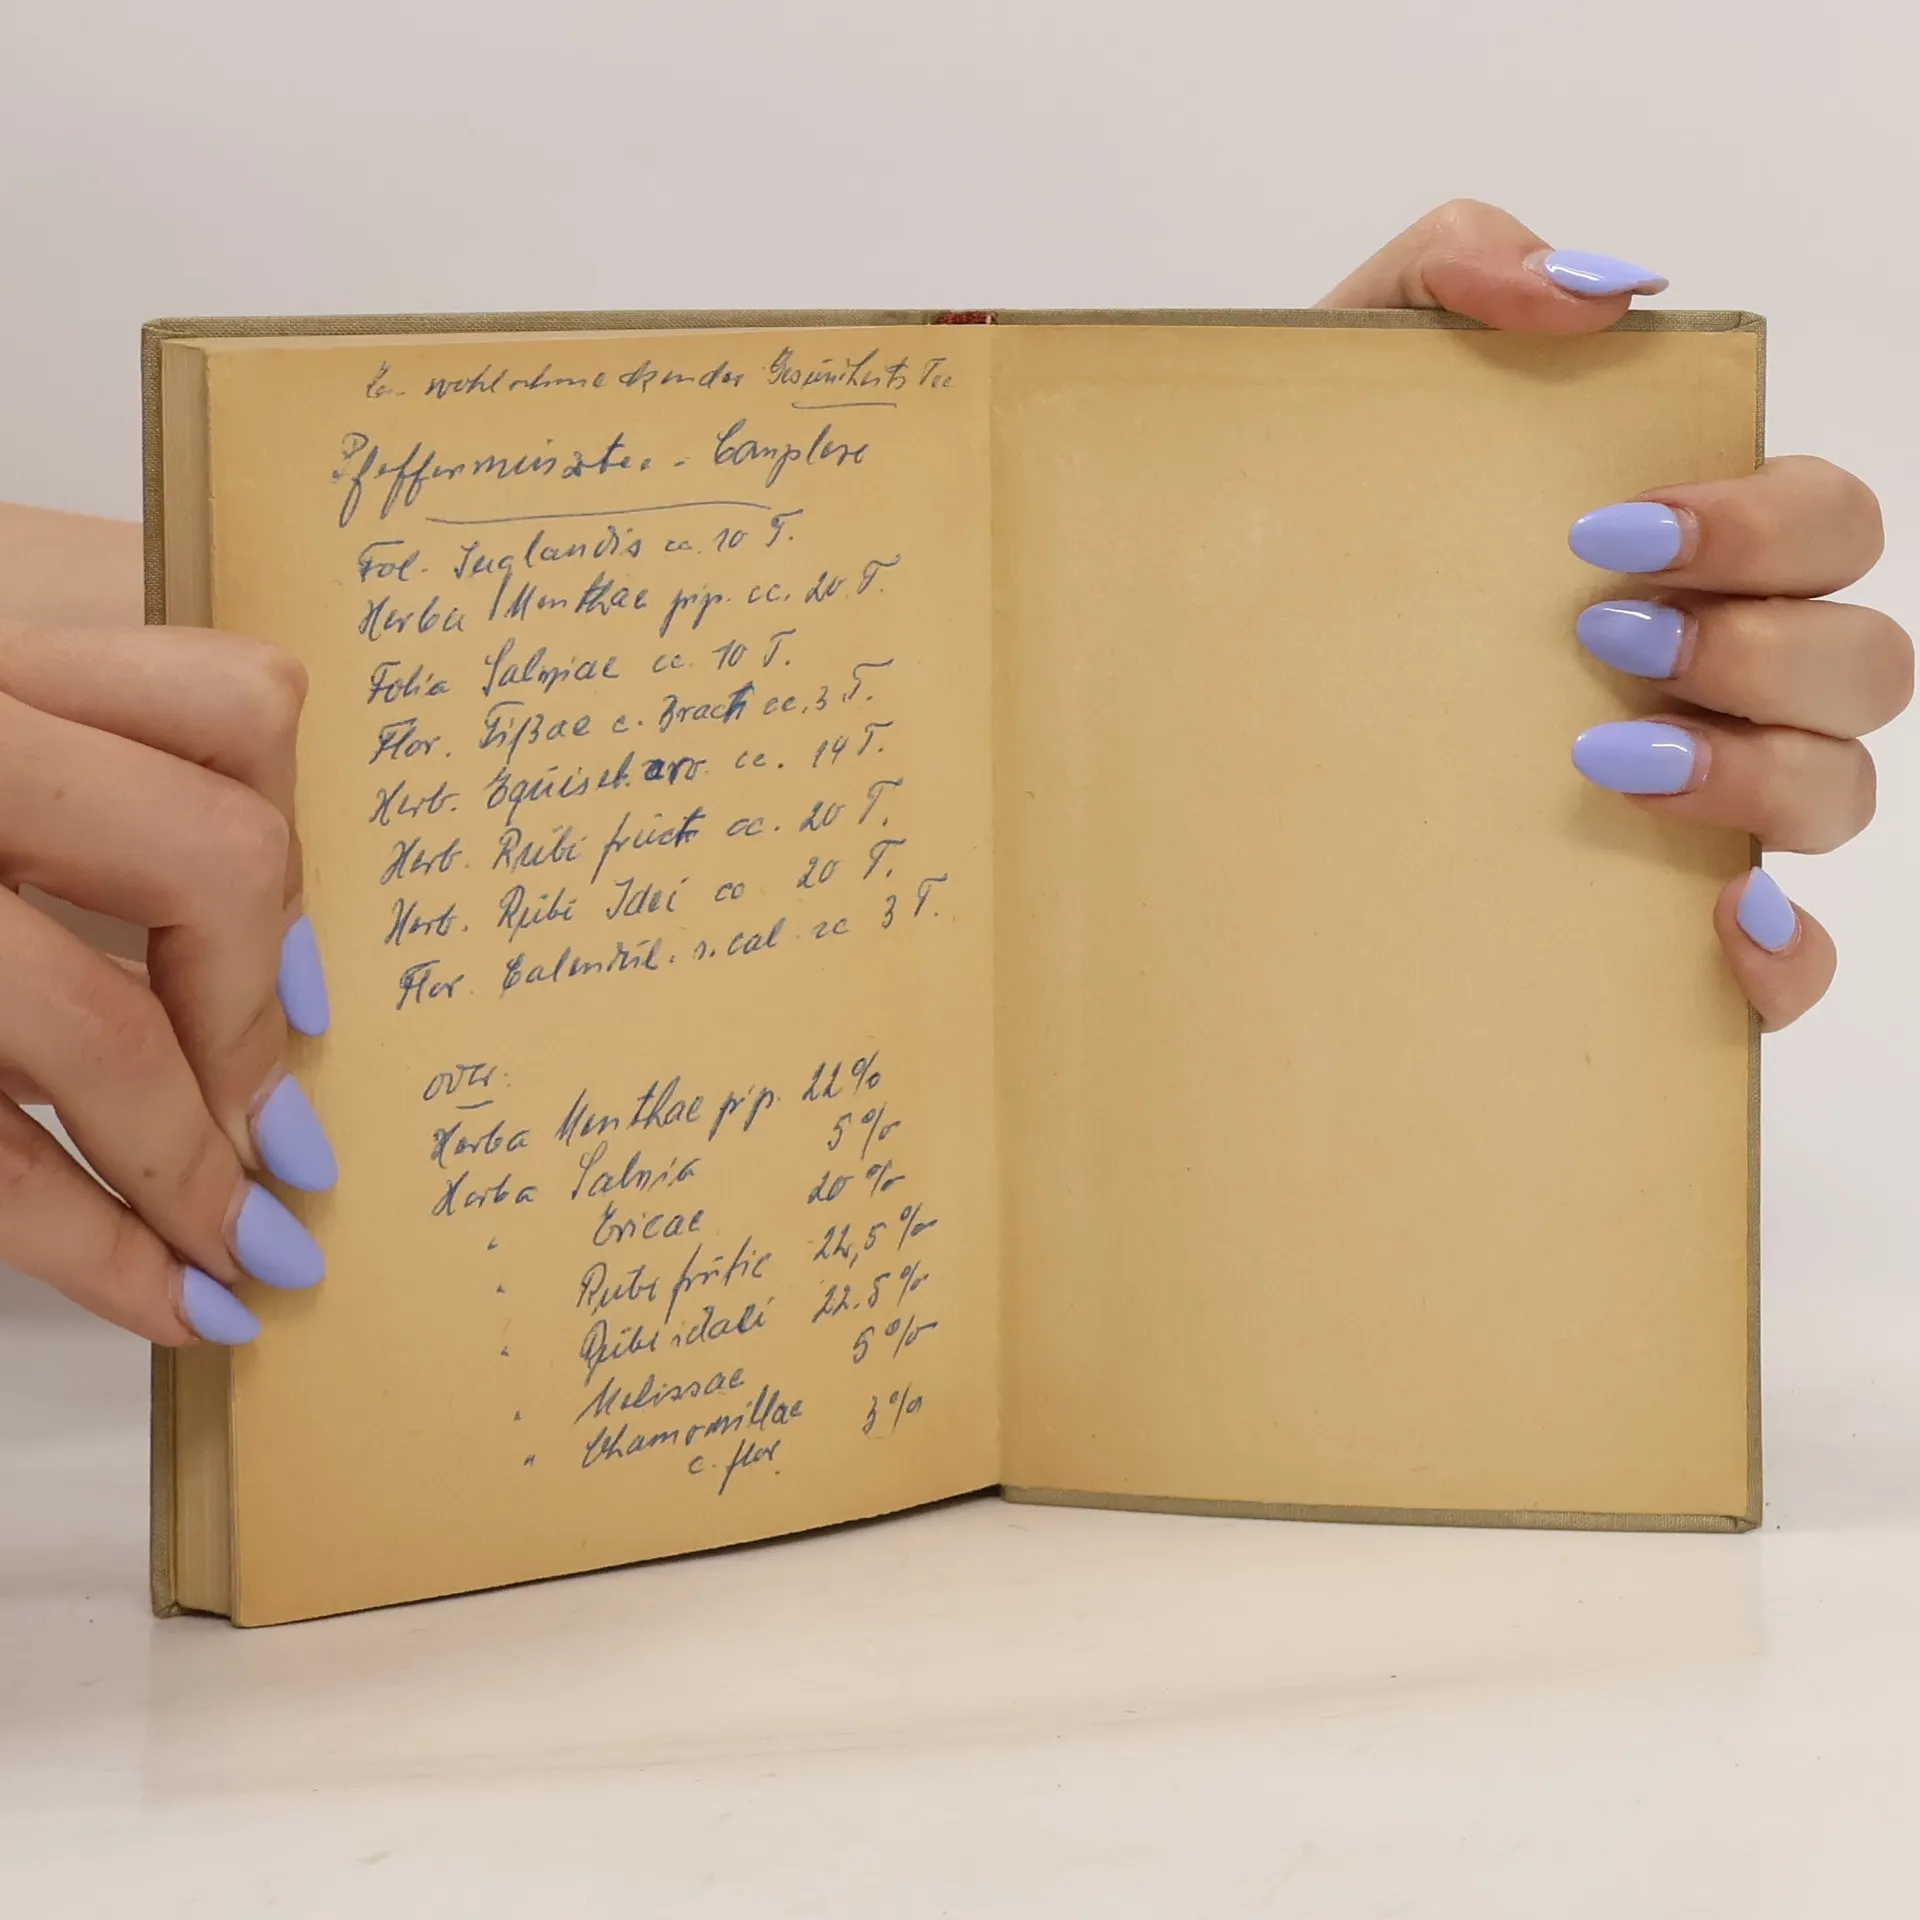 E. wohlschmeckender Gesundheits Tee
Pfefferminztee -
Fol. Juglandis cc. 10 T.
Herba Menthae pip. cc. 20 T.
Folia Salviae cc. 10 T.
Flor. Tißae c. Bract cc. 3 T.
Herb. Equiset. arv. cc. 14 T.
Herb. Rubi fruct cc. 20 T.
Herb. Rubi Idei cc 20 T.
Flor. Calendul. s. cal cc 3 T.
oder:
Herba Menthae pip. 22 %
Herba Salvia 5 %
" Ericae 20 %
" Rubi frutic 22,5 %
" Rubi idaei 22.5 %
" Melissae 5 %
" Chamomillae 3 %
c. flor.